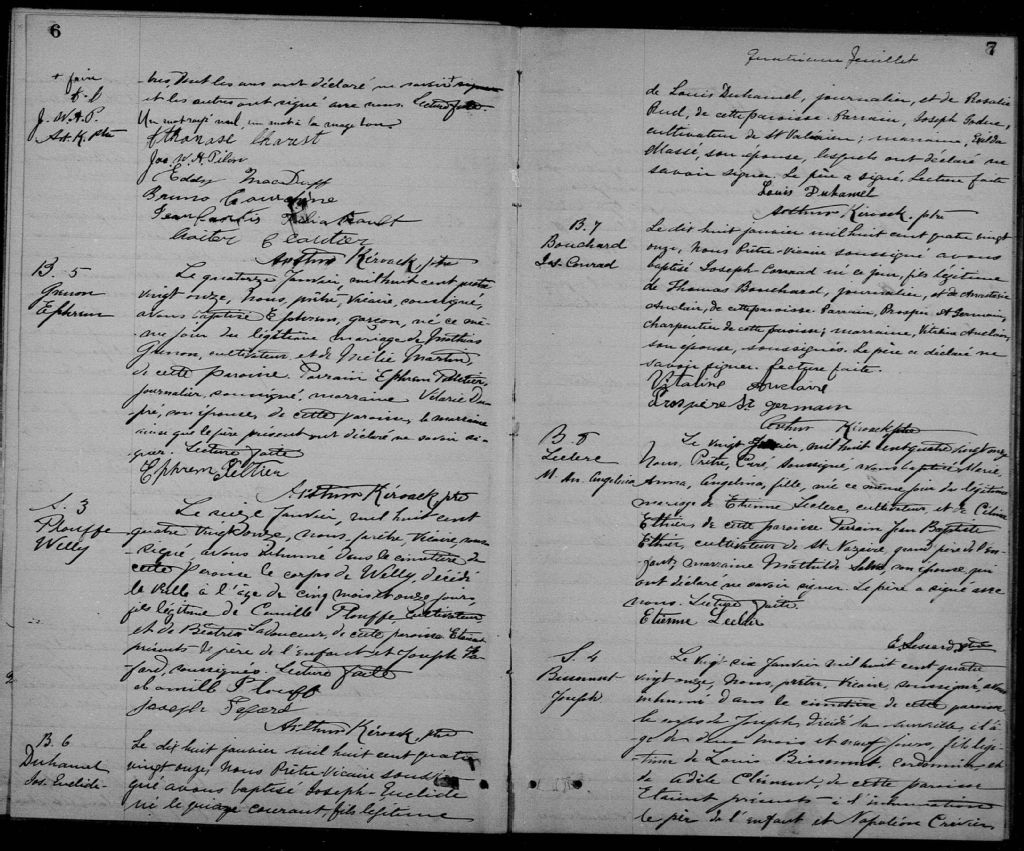 6
+ faire
J. W. A. P.
Art. K. ptre
les ans ont déclaré ne savoir signer
et les autres ont signé avec nous. Lecture faite.
Un mot rayé nul, un mot à la marge bon.
Athanase Charest
Jos. W. A. Pilon
Eddy MacDuff
Bruno
Cloutier
Arthur Kérouck, ptre
B. 5
Ephrem
Le quatorze Janvier, mil huit cent quatre
vingt onze, Nous, prêtre-Vicaire, soussigné,
avons baptisé Ephrem, garçon, né ce mê-
me jour du légitime mariage de Mathias
cultivateur, et de Martin,
de cette paroisse. Parrain Ephrem Pelletier,
journalier, soussigné, marraine Valérie Du-
pré, son épouse, de cette paroisse, la marraine
ainsi que le père présent ont déclaré ne savoir si-
gner. Lecture faite
Ephrem Peltier
Arthur Kérouck ptre
S. 3
Plouffe
Willy
Le seize Janvier, mil huit cent
quatre vingt onze, nous, prêtre, Vicaire, sous-
signé, avons inhumé dans le cimetière de
cette Paroisse le corps de Willy, décédé
la veille à l'âge de cinq mois et onze jours,
fils légitime de Camille Plouffe Cultivateur,
et de Béatrix Ladouceur, de cette paroisse. Etaient
présents le père de l'enfant et Joseph Fa-
fard, soussignés. Lecture faite
Camille Plouff
Joseph Fafard
Arthur Kérouck, ptre
B. 6
Duhamel
Jos. Euclide
Le dix huit janvier mil huit cent quatre
vingt onze, Nous Prêtre-Vicaire soussi-
gné avons baptisé Joseph-Euclide
né le quinze courant, fils légitime
7
Quatrième feuillet
de Louis Duhamel, journalier, et de Rosalie
Ruel, de cette paroisse. Parrain, Joseph
cultivateur de St Valérien; marraine, Exilda
Massé, son épouse, lesquels ont déclaré ne
savoir signer. Le père a signé. Lecture faite
Louis Duhamel
Arthur Kérouck. ptre
B. 7
Bouchard
Jos. Conrad
Le dix huit janvier mil huit cent quatre vingt
onze, Nous Prêtre-Vicaire soussigné avons
baptisé Joseph-Conrad né ce jour, fils légitime
de Thomas Bouchard, journalier, et de Anastasie
Auclair, de cette paroisse. Parrain, Prosper St Germain,
charpentier de cette paroisse; marraine, Vitaline Auclair,
son épouse, soussignés. Le père a déclaré ne
savoir signer. Lecture faite.
Vitaline Auclaire
Prospère St germain
Arthur Kérouck ptre
B. 8
Leclerc
M. An. Angelina
Le vingt Janvier, mil huit cent quatre vingt onze
Nous, Prêtre, Curé, soussigné, avons baptisé Marie
Anna, Angelina, fille, née ce même jour du légitime
mariage de Etienne Leclerc, cultivateur, et de Célina
Ethier, de cette paroisse. Parrain Jean Baptiste
Ethier, cultivateur de St. Nazaire, grand père de l'en-
fant, marraine Mathilde son épouse, qui
ont déclaré ne savoir signer. Le père a signé avec
nous. Lecture faite.
Etienne Lecler
E. Lessard, ptre
S. 4
Bissonnet
Joseph
Le vingt six Janvier mil huit cent quatre
vingt onze, Nous, prêtre, Vicaire, soussigné, avons
inhumé dans le cimetière de cette paroisse
le corps de Joseph, décédé la surveille, à l'â-
ge de deux mois et neuf jours, fils légi-
time de Louis Bissonnet, Cordonnier, et
de Adèle Clément, de cette paroisse
Etaient présents à l'inhumation
le père de l'enfant et Napoléon Crevier,